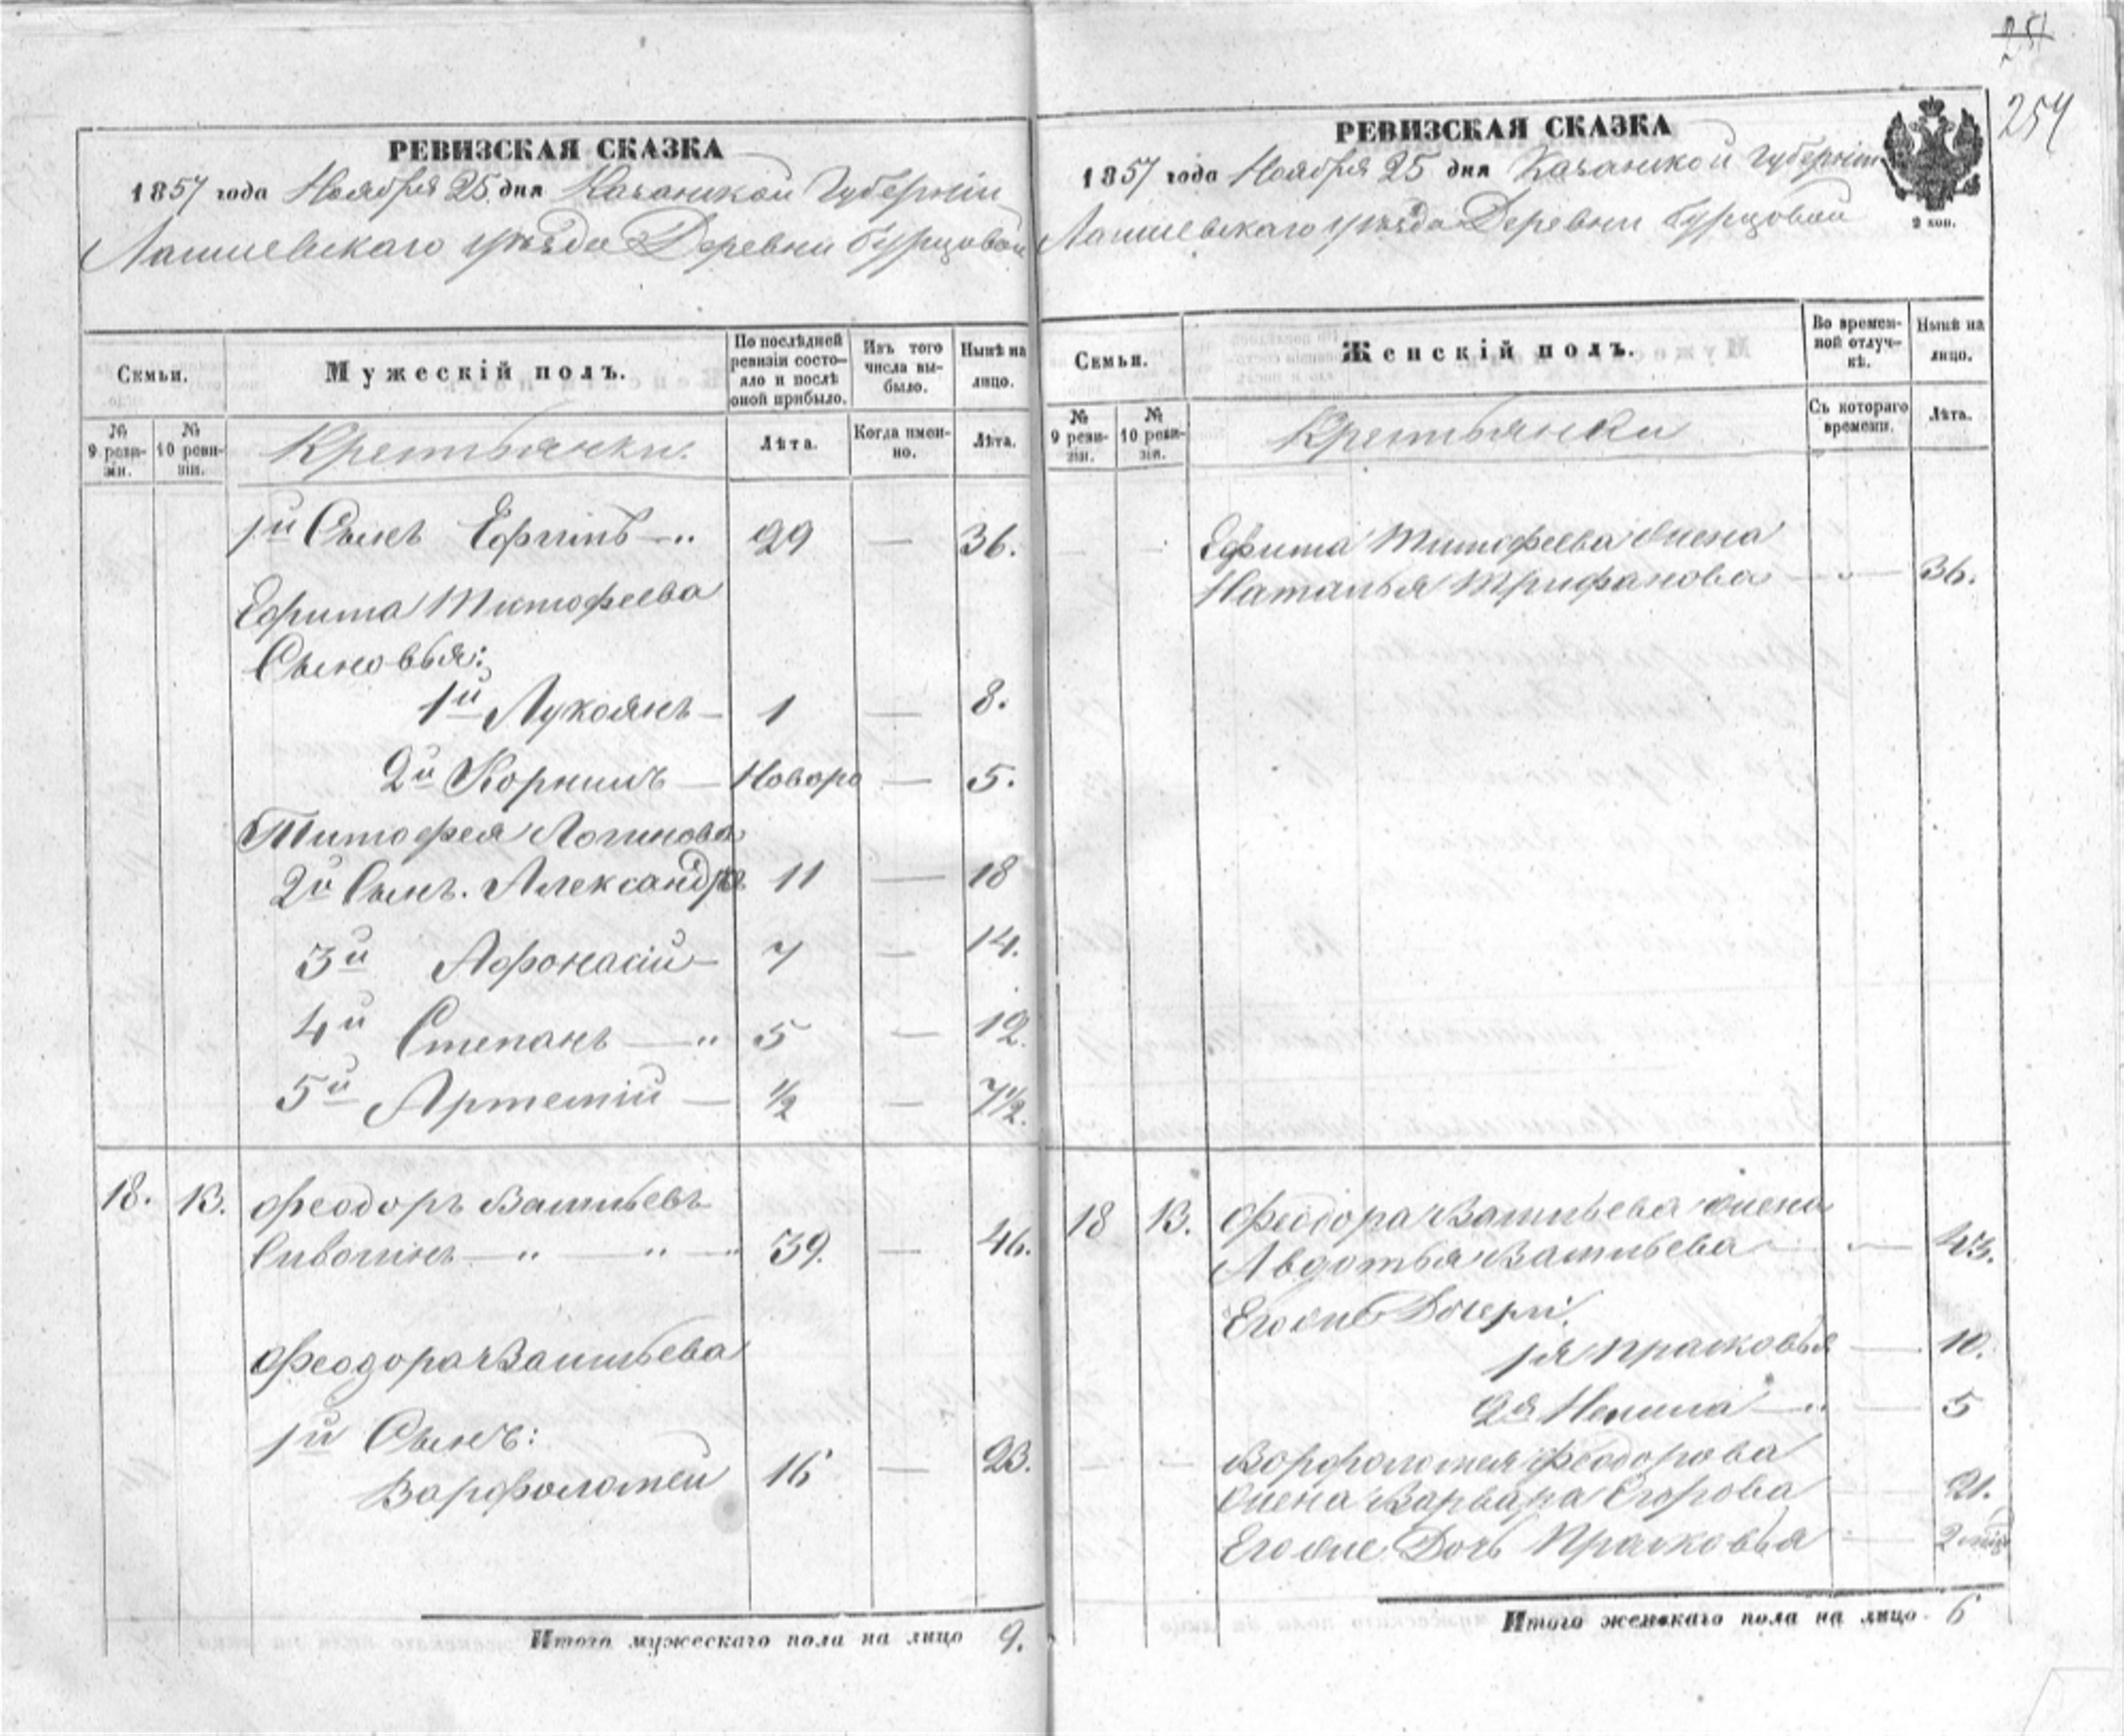 254
РЕВИЗСКАЯ СКАЗКА
1857 года Ноября 25 дня Казанской Губерніи
Лаишевскаго уѣзда Деревни Бурцовой
Семьи.
Мужескій полъ.
По послѣдней ревизіи состояло и послѣ оной прибыло.
Изъ того числа выбыло.
Нынѣ на лицо.
№ 9 ревизіи.
№ 10 ревизіи.
Крестьянки.
Лѣта.
Когда именно.
Лѣта.
1й Сынъ Ефимъ — 29 — 36.
Ефима Тимофеева
Сыновья:
1й Лукоянъ — 1 — 8.
2й Корнилъ — Новоро — 5.
Тимофея Логинова
2й Сынъ. Александръ 11 — 18
3й Афонасій — 7 — 14.
4й Степанъ — 5 — 12.
5й Артемій — ½ — 7½.
18. 13. Феодоръ Васильевъ
39. — 46.
Феодора Васильева
1й Сынъ:
Варфоломей 16 — 23.
Итого мужескаго пола на лицо 9.
РЕВИЗСКАЯ СКАЗКА
1857 года Ноября 25 дня Казанской Губерніи
Лаишевскаго уѣзда Деревни Бурцовой
2 коп.
Семьи.
Женскій полъ.
Во временной отлучкѣ.
Нынѣ на лицо.
№ 9 ревизіи.
№ 10 ревизіи.
Крестьянки
Съ котораго времени.
Лѣта.
Ефима Тимофеева жена
Наталья Трифанова — 36.
18 13. Феодора Васильева жена
Авдотья Васильева — 43.
Его же Дочери:
1я Прасковья — 10.
2я — 5
Ворфоломея Феодорова
жена Варвара Егорова 21.
Его же Дочь Прасковья — 2
Итого женскаго пола на лицо 6